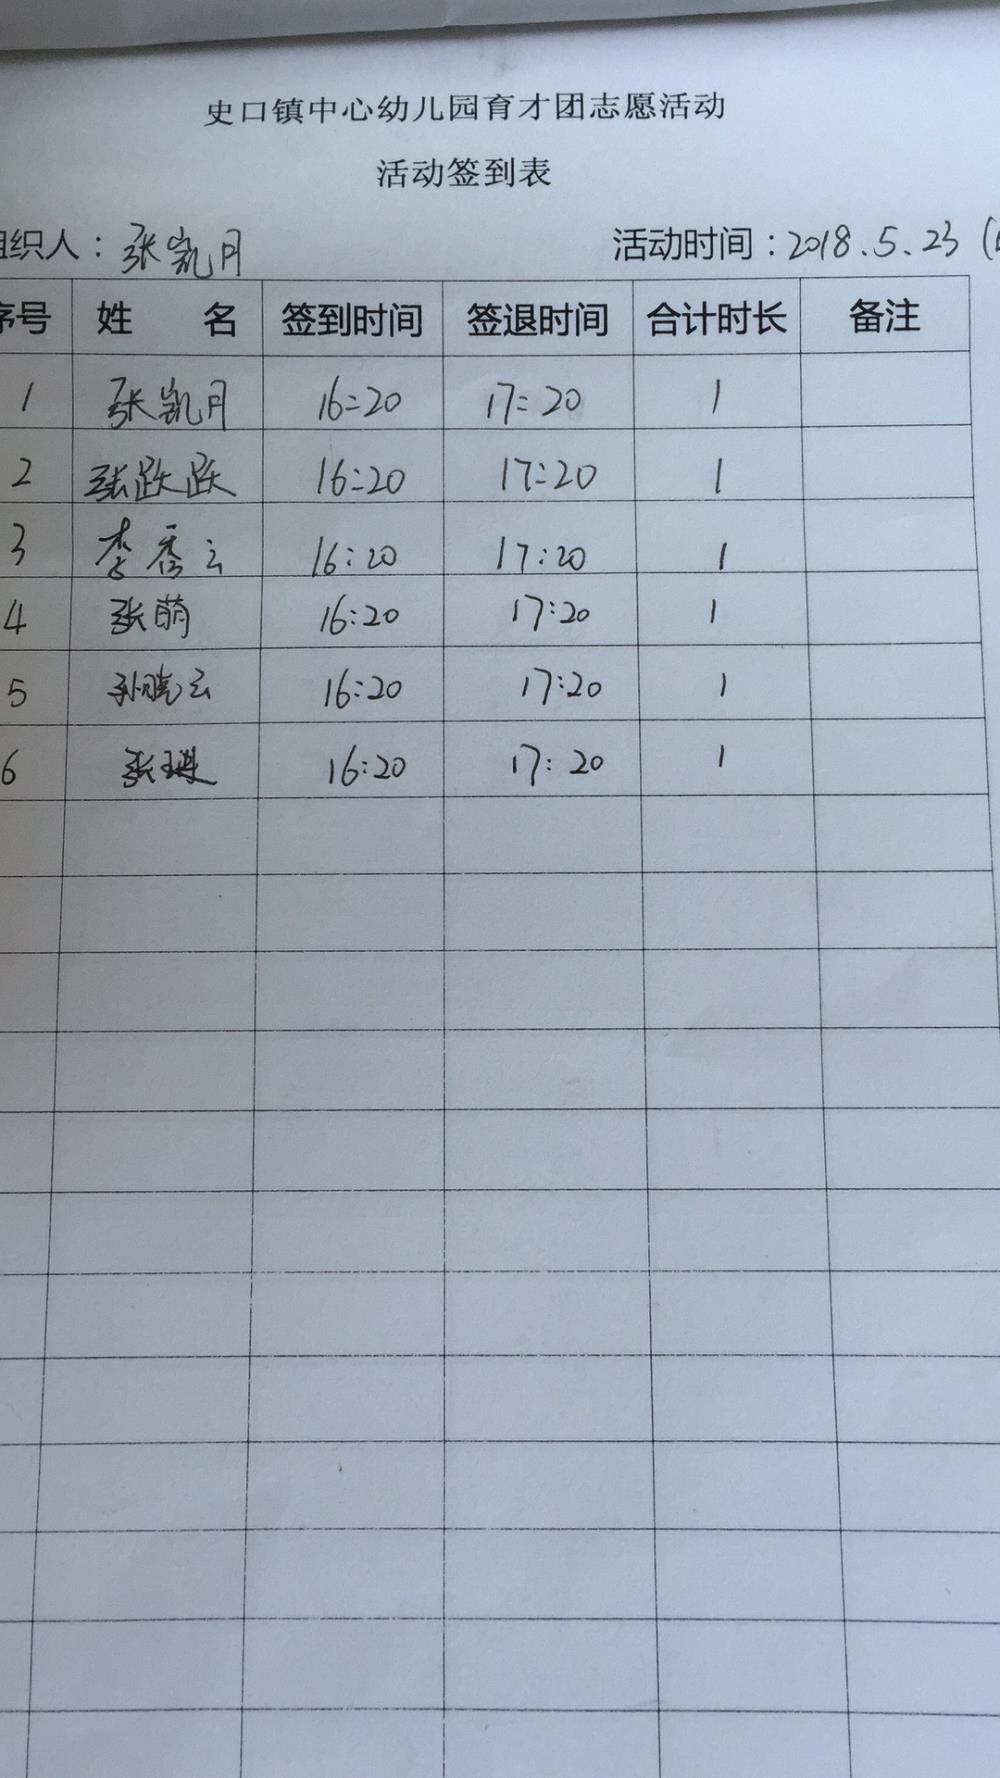 史口镇中心幼儿园育才团志愿活动
活动签到表
组织人：张凯月 活动时间：2018.5.23（
序号 姓 名 签到时间 签退时间 合计时长 备注
1 张凯月 16:20 17:20 1
2 张跃跃 16:20 17:20 1
3 李秀云 16:20 17:20 1
4 张萌 16:20 17:20 1
5 孙晓云 16:20 17:20 1
6 张 16:20 17:20 1